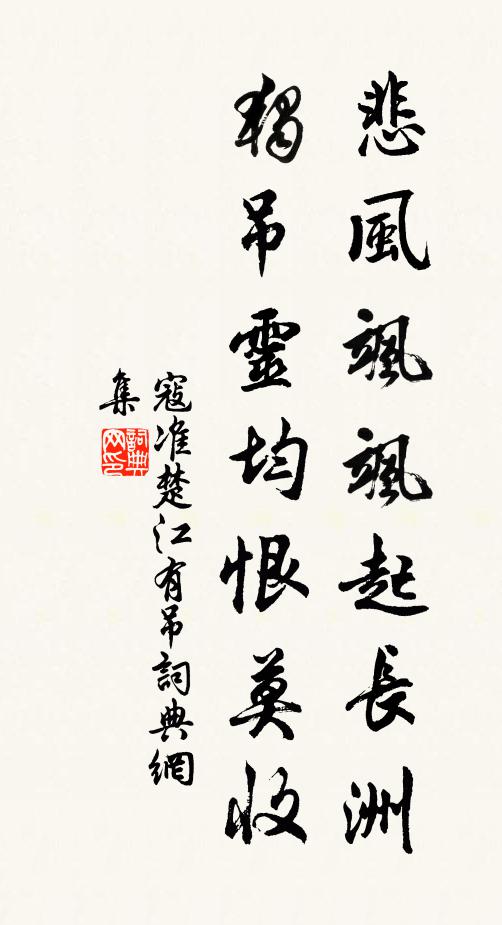 悲風颯颯起長洲
獨吊靈均恨莫收
寇准楚江有吊詞典網
集
詞典網印